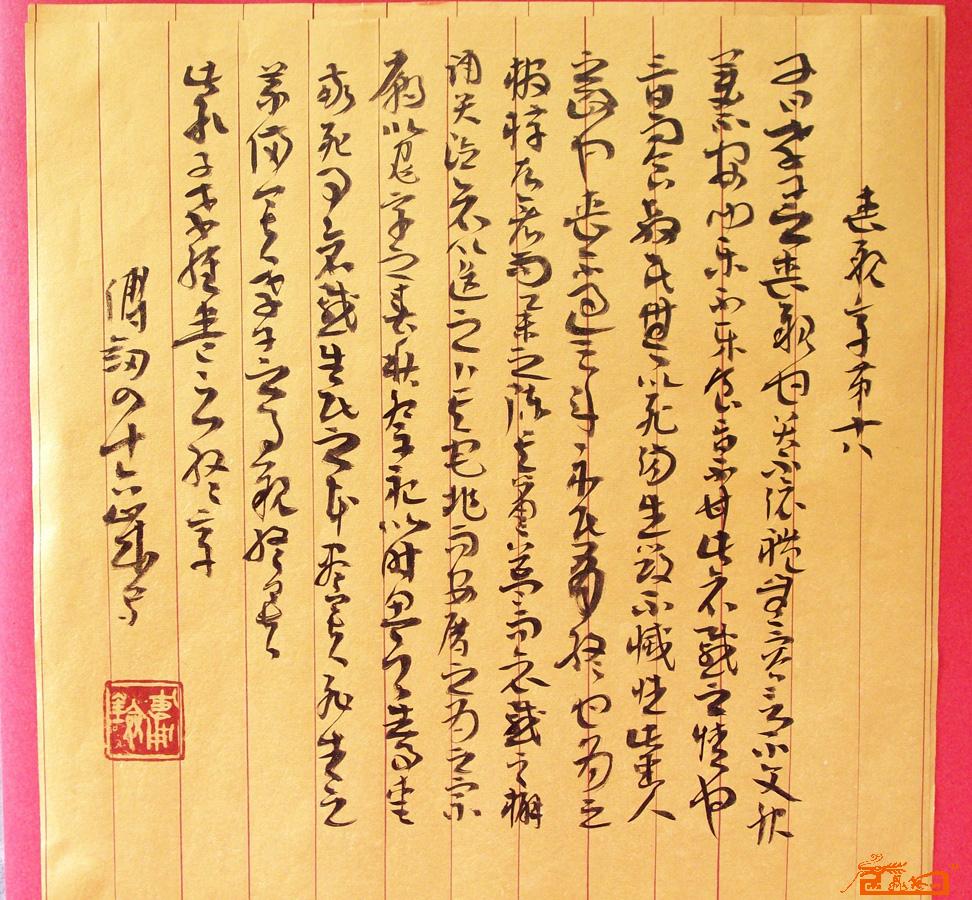 喪親章第十八
子曰孝子之喪親也哭不偯禮無容言不文服
美不安聞樂不樂食旨不甘此哀慼之情也
三日而食教民無以死傷生毀不滅性此聖人
之政也喪不過三年示民有終也為之
棺槨衣衾而舉之陳其簠簋而哀慼之擗
踊哭泣哀以送之卜其宅兆而安厝之為之宗
廟以鬼享之春秋祭祀以時思之生事愛
敬死事哀慼生民之本盡矣死生之
義備矣孝子之事親終矣
此孔子孝經書之終章
四十六歲書